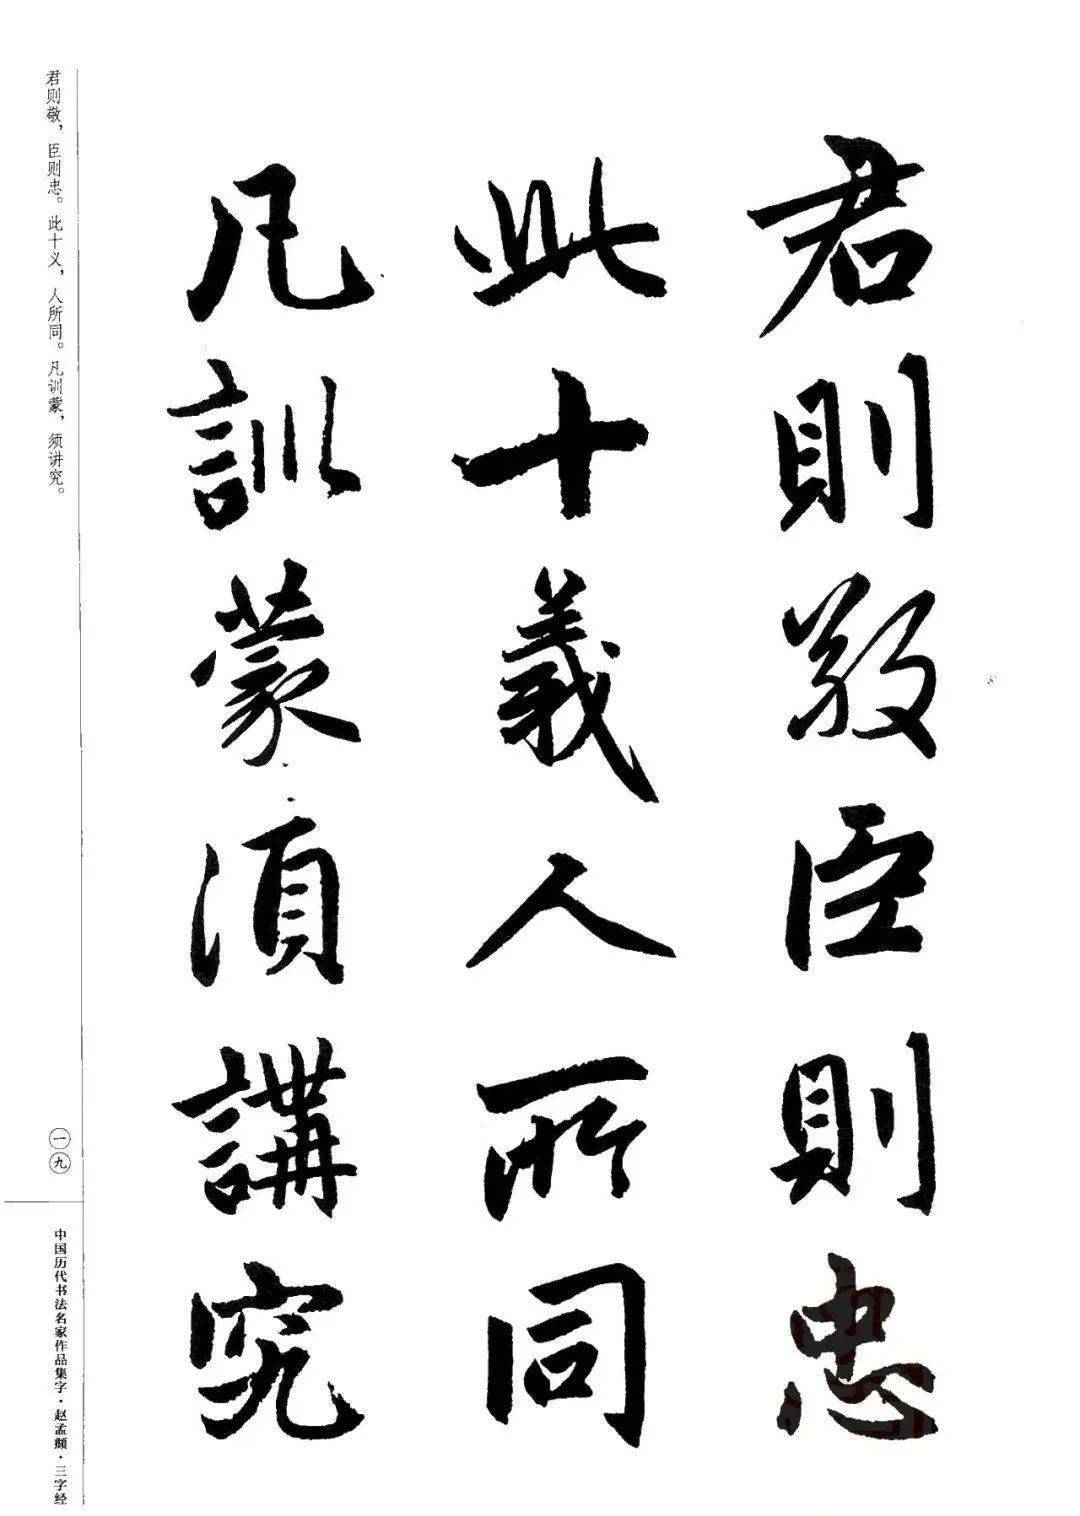 君則敬臣則忠
此十義人所同
凡訓蒙須講究
君则敬，臣则忠。此十义，人所同。凡训蒙，须讲究。
一九
中国历代书法名家作品集字·赵孟頫·三字经